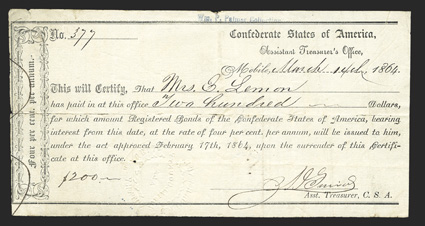 No. 377
Confederate States of America,
Assistant Treasurer's Office,
Mobile, March 14th, 1864.
This will Certify, That Mrs. E. Lemon
has paid in at this office Two hundred Dollars,
for which amount Registered Bonds of the Confederate States of America, bearing
interest from this date, at the rate of four per cent. per annum, will be issued to him,
under the act approved February 17th, 1864, upon the surrender of this Certifi-
cate at this office.
$200
Asst. Treasurer, C. S. A.
Four per cent. per annum.